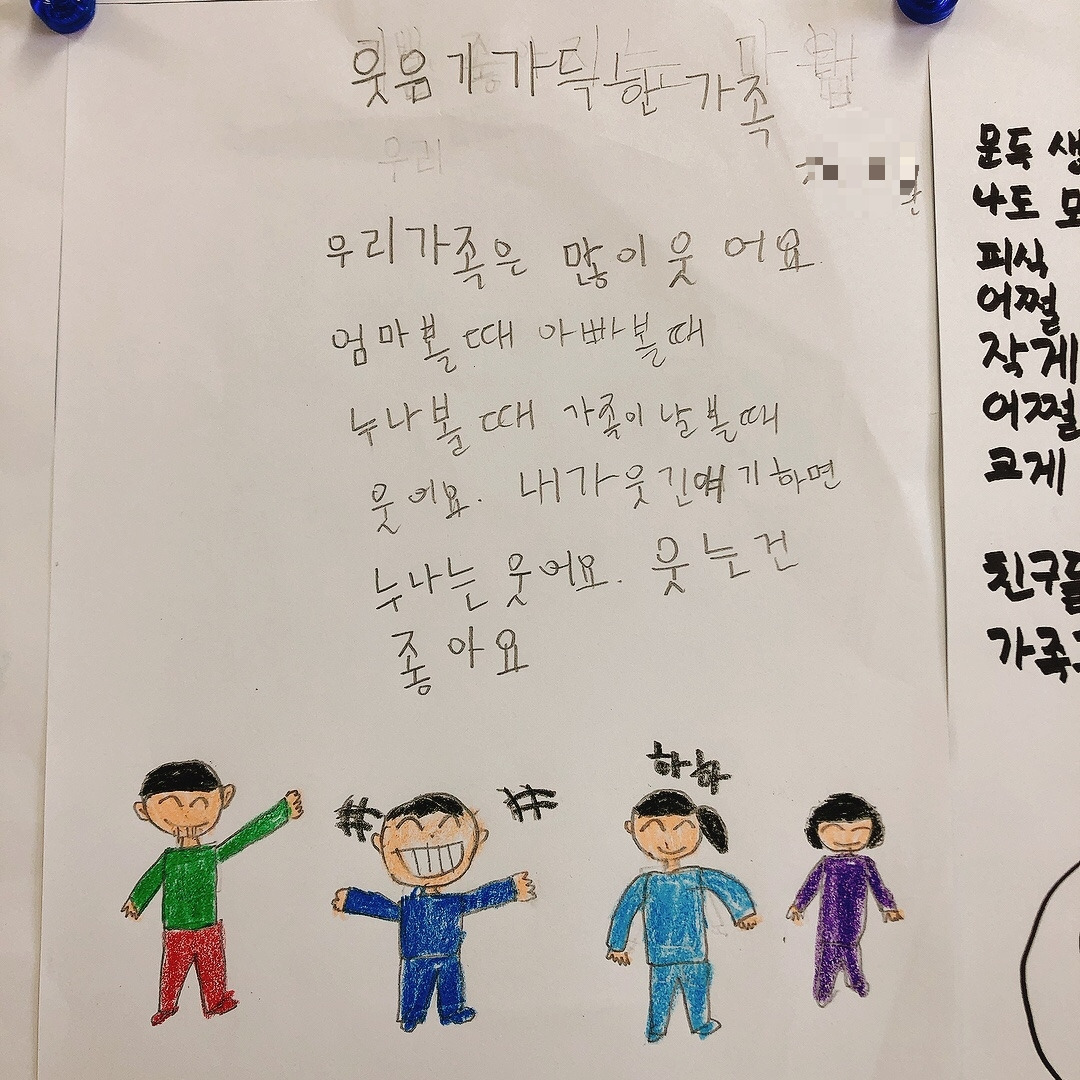 웃음기가득한 가족
우리
우리가족은 많이웃어요.
엄마볼때 아빠볼때
누나볼때 가족이날볼때
웃어요. 내가웃긴얘기하면
누나는웃어요. 웃는건
좋아요
하하
문득
나도
피식
어쩔
작게
어쩔
크게
친구들
가족